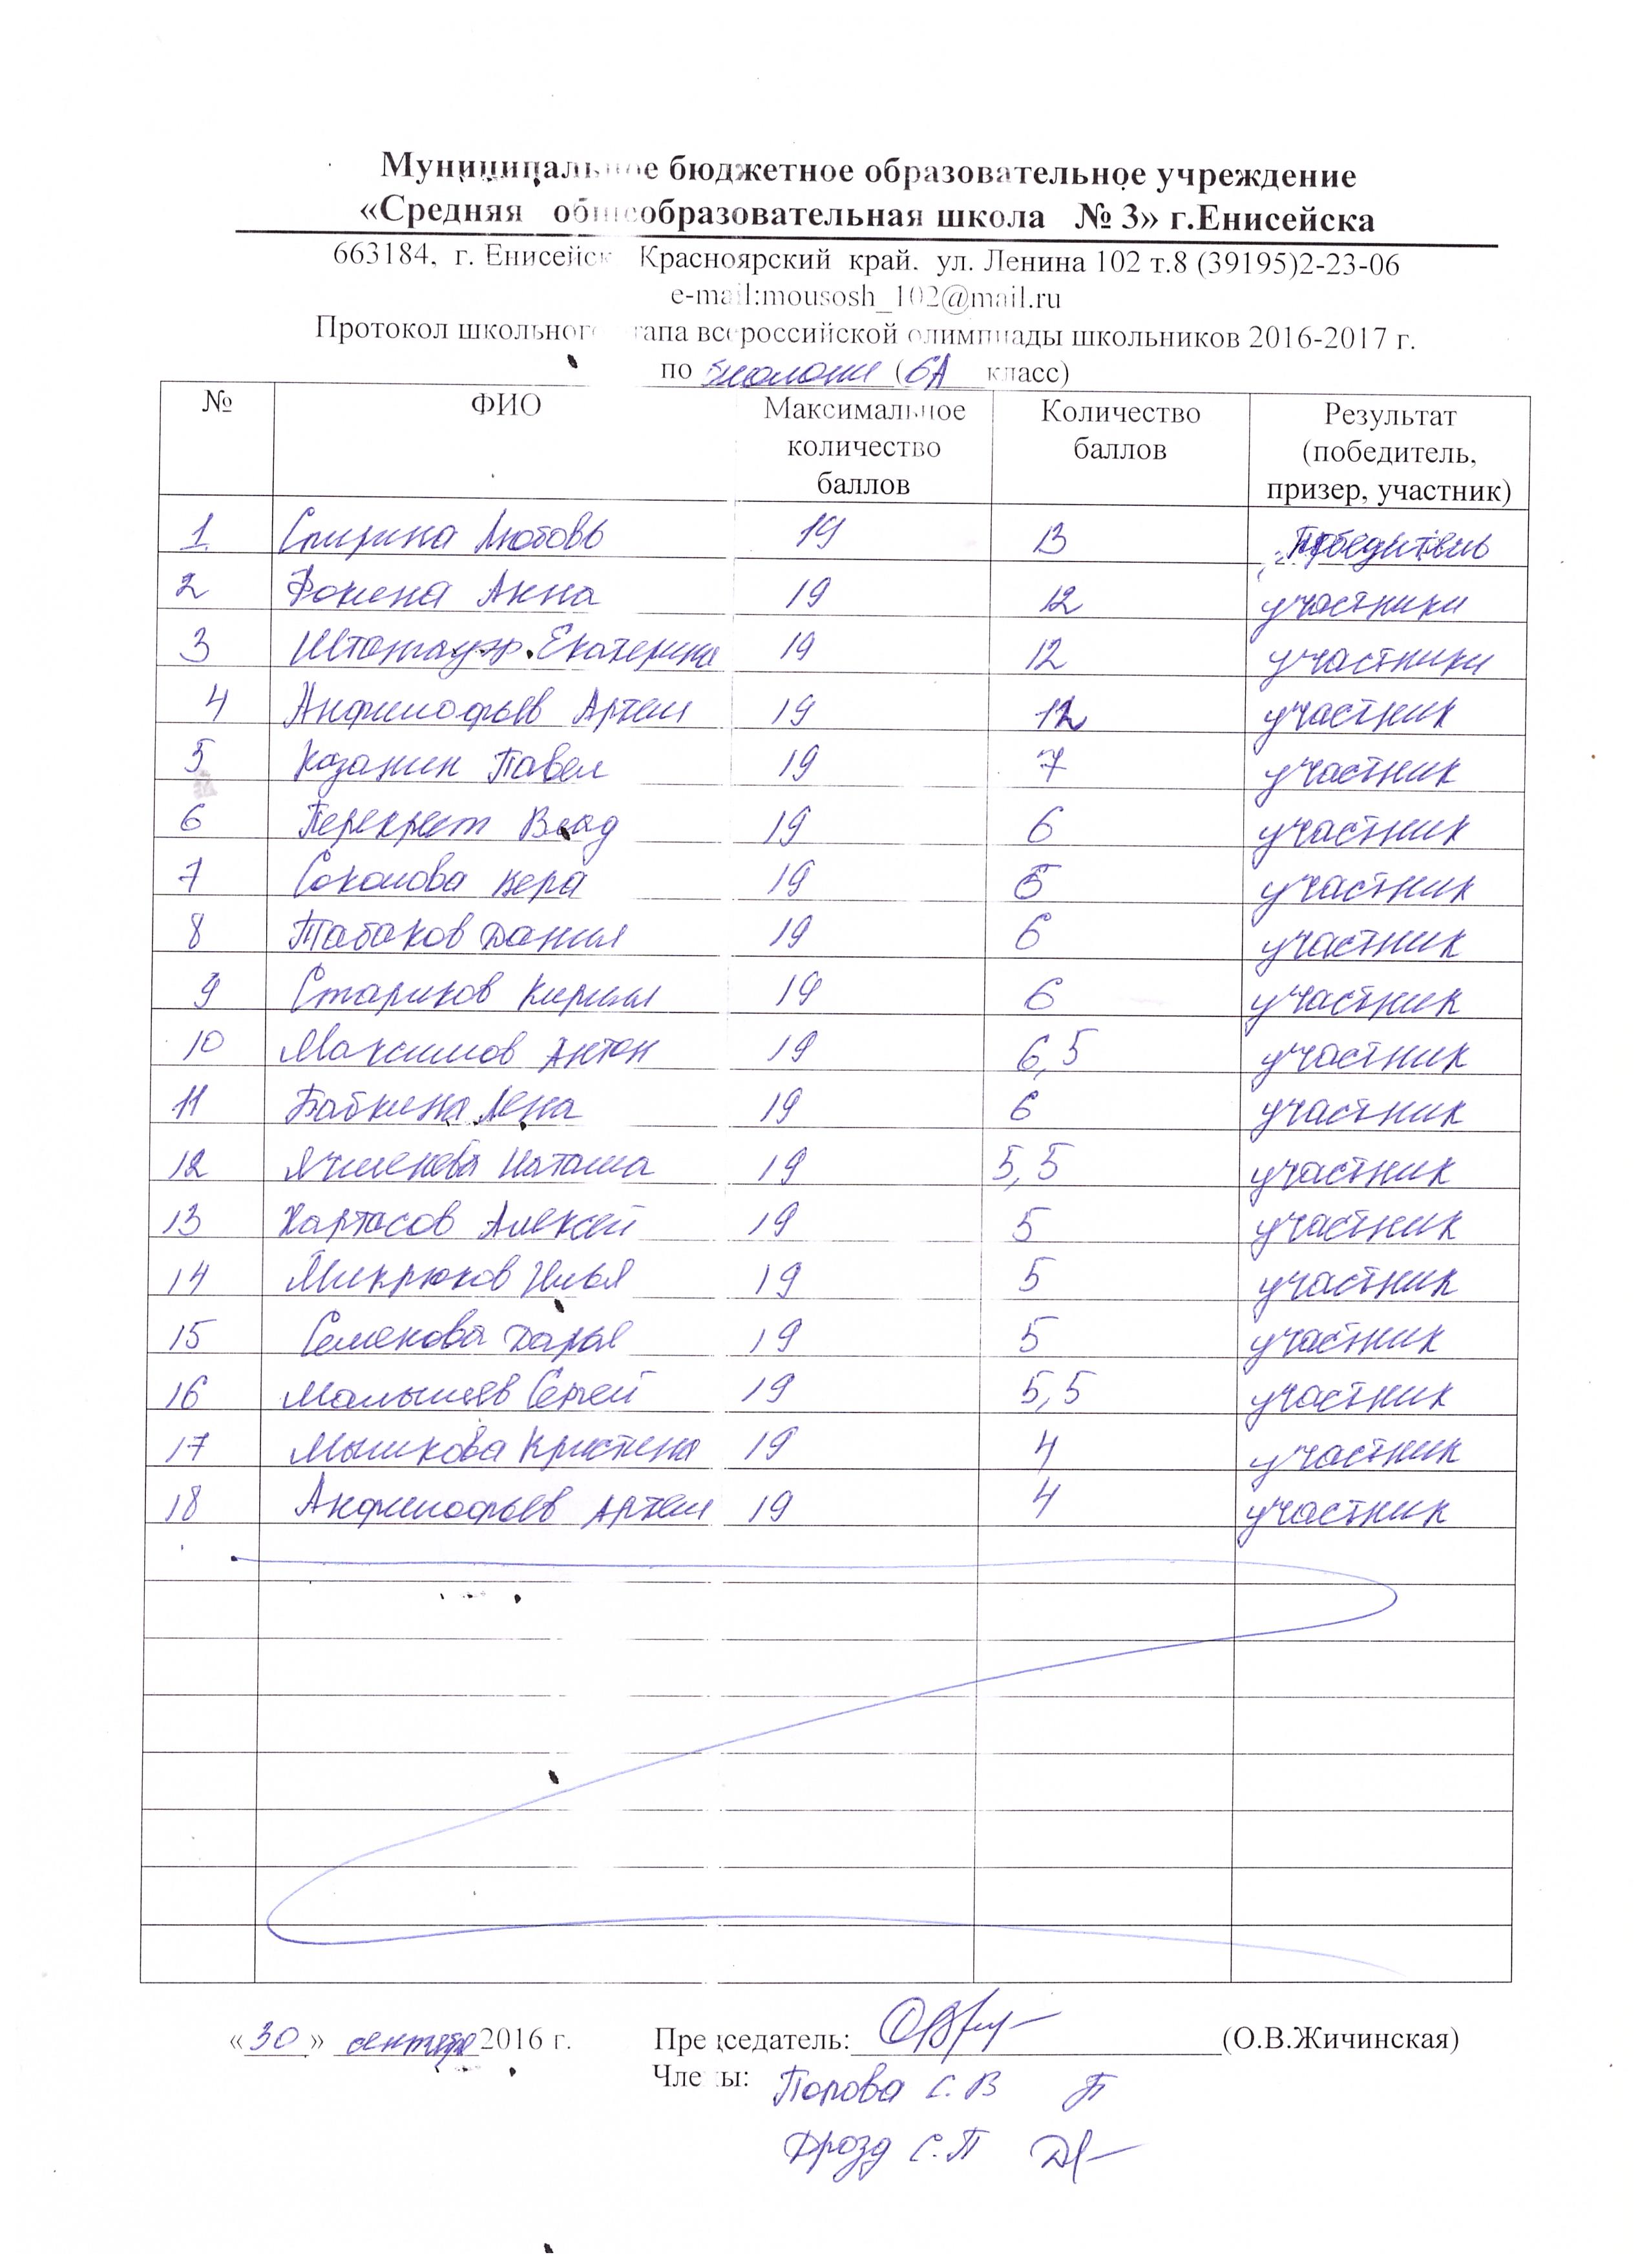 Муниципальное бюджетное образовательное учреждение
«Средняя общеобразовательная школа № 3» г.Енисейска
663184, г. Енисейск Красноярский край, ул. Ленина 102 т.8 (39195)2-23-06
e-mail:mousosh_102@mail.ru
Протокол школьного этапа всероссийской олимпиады школьников 2016-2017 г.
по биологии (6А класс)
№ ФИО Максимальное количество баллов Количество баллов Результат (победитель, призер, участник)
1. Спирина Любовь 19 13 Победитель
2 Фокина Анна 19 12 участники
3 Екатерина 19 12 участники
4 Анфилофьев Артем 19 12 участник
5 Казанин Павел 19 7 участник
6 Перекрест Влад 19 6 участник
7 Соколова Вера 19 участник
8 Табаков Данил 19 6 участник
9 Стариков Кирилл 19 6 участник
10 Максимов Антон 19 6,5 участник
11 Бабкина Лена 19 6 участник
12 Ячменева Наташа 19 5,5 участник
13 Картасов Алексей 19 5 участник
14 Микрюков Илья 19 5 участник
15 Семенова Дарья 19 5 участник
16 Малышев Сергей 19 5,5 участник
17 Мышкова Кристина 19 4 участник
18 Анфилофьев Артем 19 4 участник
«30» сентября 2016 г. Председатель: (О.В.Жичинская)
Члены: Попова С.В П
Дрозд С.П